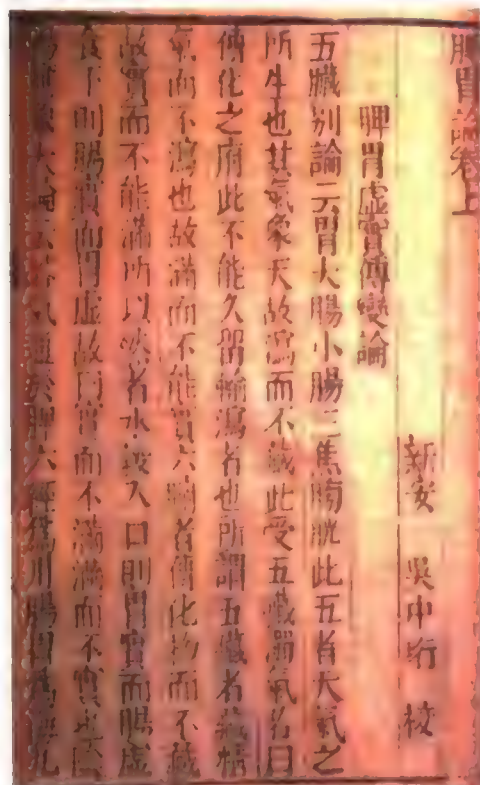 脾胃論卷上
新安 吳中珩 校
脾胃虛實傳變論
五臟別論云胃大腸小腸三焦膀胱此五者天氣之
所生也其氣象天故瀉而不藏此受五臟濁氣名曰
傳化之府此不能久留輸瀉者也所謂五臟者藏精
氣而不瀉也故滿而不能實六腑者傳化物而不藏
故實而不能滿所以然者水穀入口則胃實而腸虛
食下則腸實而胃虛故曰實而不滿滿而不實
大論云 氣通於脾六經為川腸胃為 九